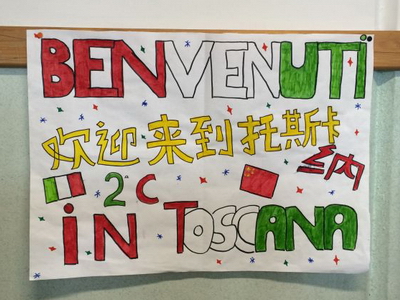 BENVENUTI
欢迎来到托斯卡
纳
2ª C
IN TOSCANA